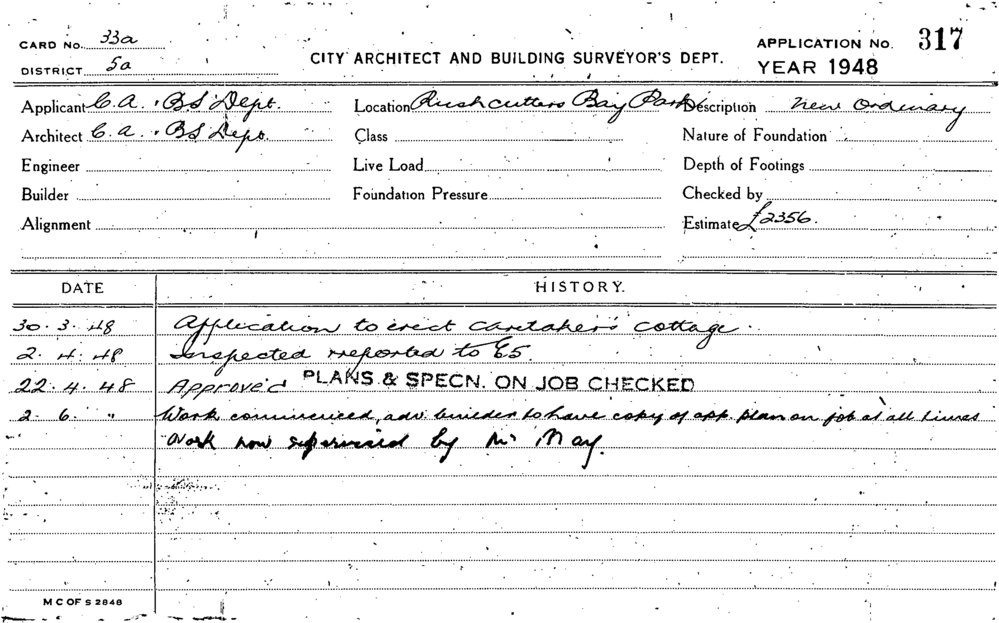 CARD No. 33a
DISTRICT 5a
CITY ARCHITECT AND BUILDING SURVEYOR'S DEPT.
APPLICATION No. 317
YEAR 1948
Applicant C.A. & BS Dept. Location Rushcutters Bay Park Description New Ordinary
Architect C.A. & BS Dept. Class Nature of Foundation
Engineer Live Load Depth of Footings
Builder Foundation Pressure Checked by
Alignment Estimate £2356.
DATE HISTORY.
30.3.48 Application to erect caretaker's cottage.
2.4.48 Inspected & reported to
22.4.48 Approved PLANS & SPECN. ON JOB CHECKED
2.6. " Work commenced, adv. builder to have copy of app. plan on job at all times
Work now supervised by Mr May.
M C OF S 2848